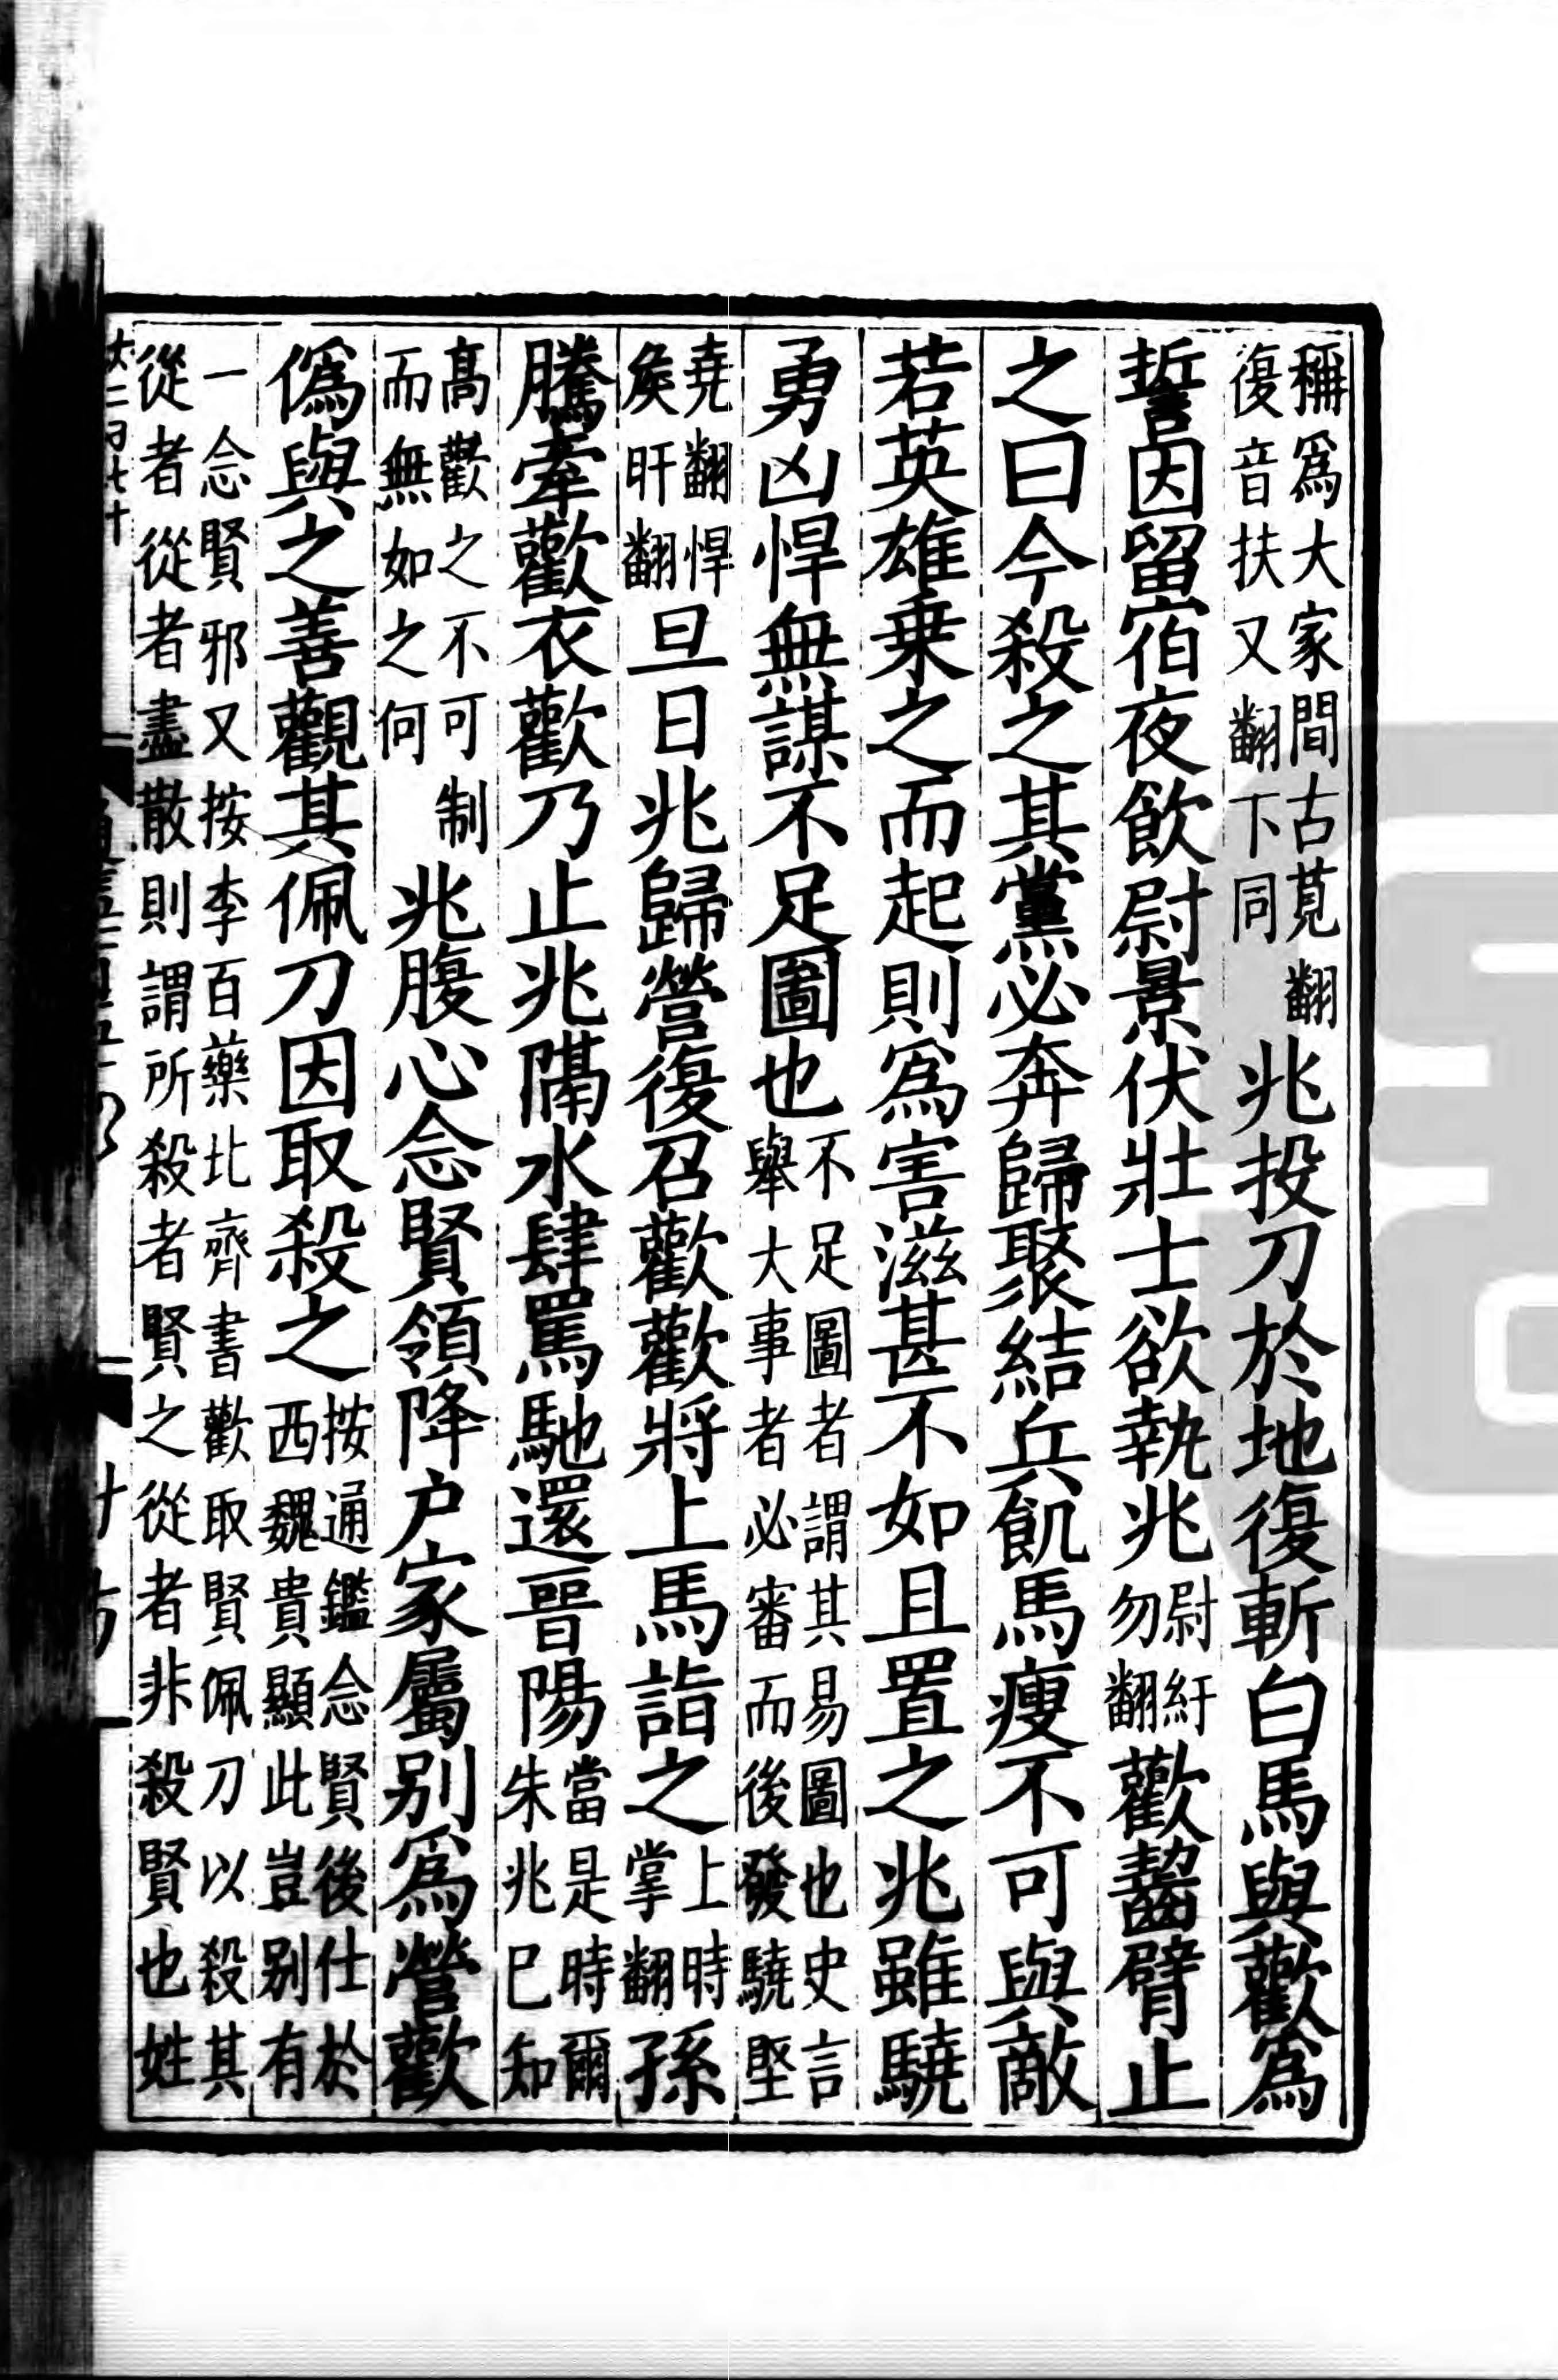 稱爲大家間古莧翻復音扶又翻下同兆投刀於地復斬白馬與歡爲
誓因留宿夜飲尉景伏壯士欲執兆尉紆勿翻歡齧臂止
之曰今殺之其黨必奔歸聚結兵飢馬瘦不可與敵
若英雄乗之而起則爲害滋甚不如且置之兆雖驍
勇凶悍無謀不足圖也不足圖者謂其易圖也史言舉大事者必審而後發驍堅
堯翻悍矦旰翻旦日兆歸營復召歡歡將上馬詣之上時掌翻孫
騰牽歡衣歡乃止兆隔水肆罵馳還晉陽當是時爾朱兆已知
髙歡之不可制而無如之何兆腹心念賢領降户家屬别爲營歡
僞與之善觀其佩刀因取殺之按通鑑念賢後仕於西魏貴顯此豈别有
一念賢邪又按李百藥北齊書歡取賢佩刀以殺其從者從者盡散則謂所殺者賢之從者非殺賢也姓